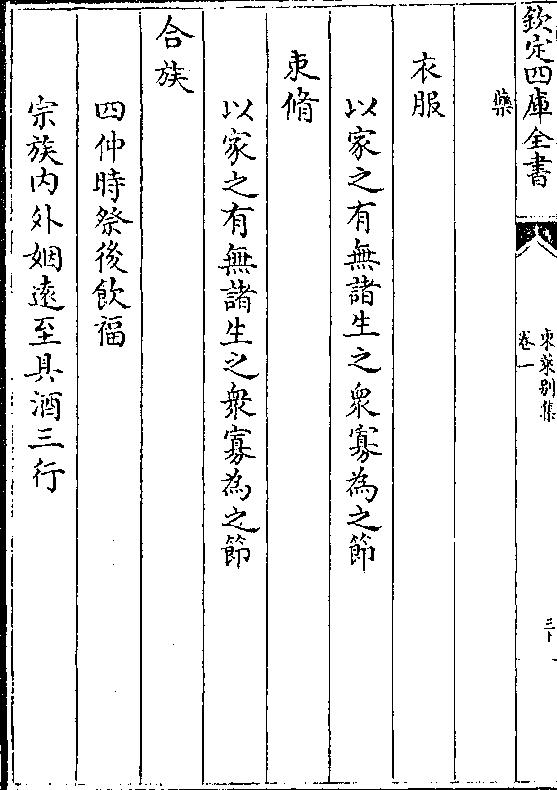 欽定四庫全書
東萊別集
卷一
三十
藥
衣服
以家之有無諸生之衆寡為之節
束脩
以家之有無諸生之衆寡為之節
合族
四仲時祭後飲福
宗族内外姻遠至具酒三行